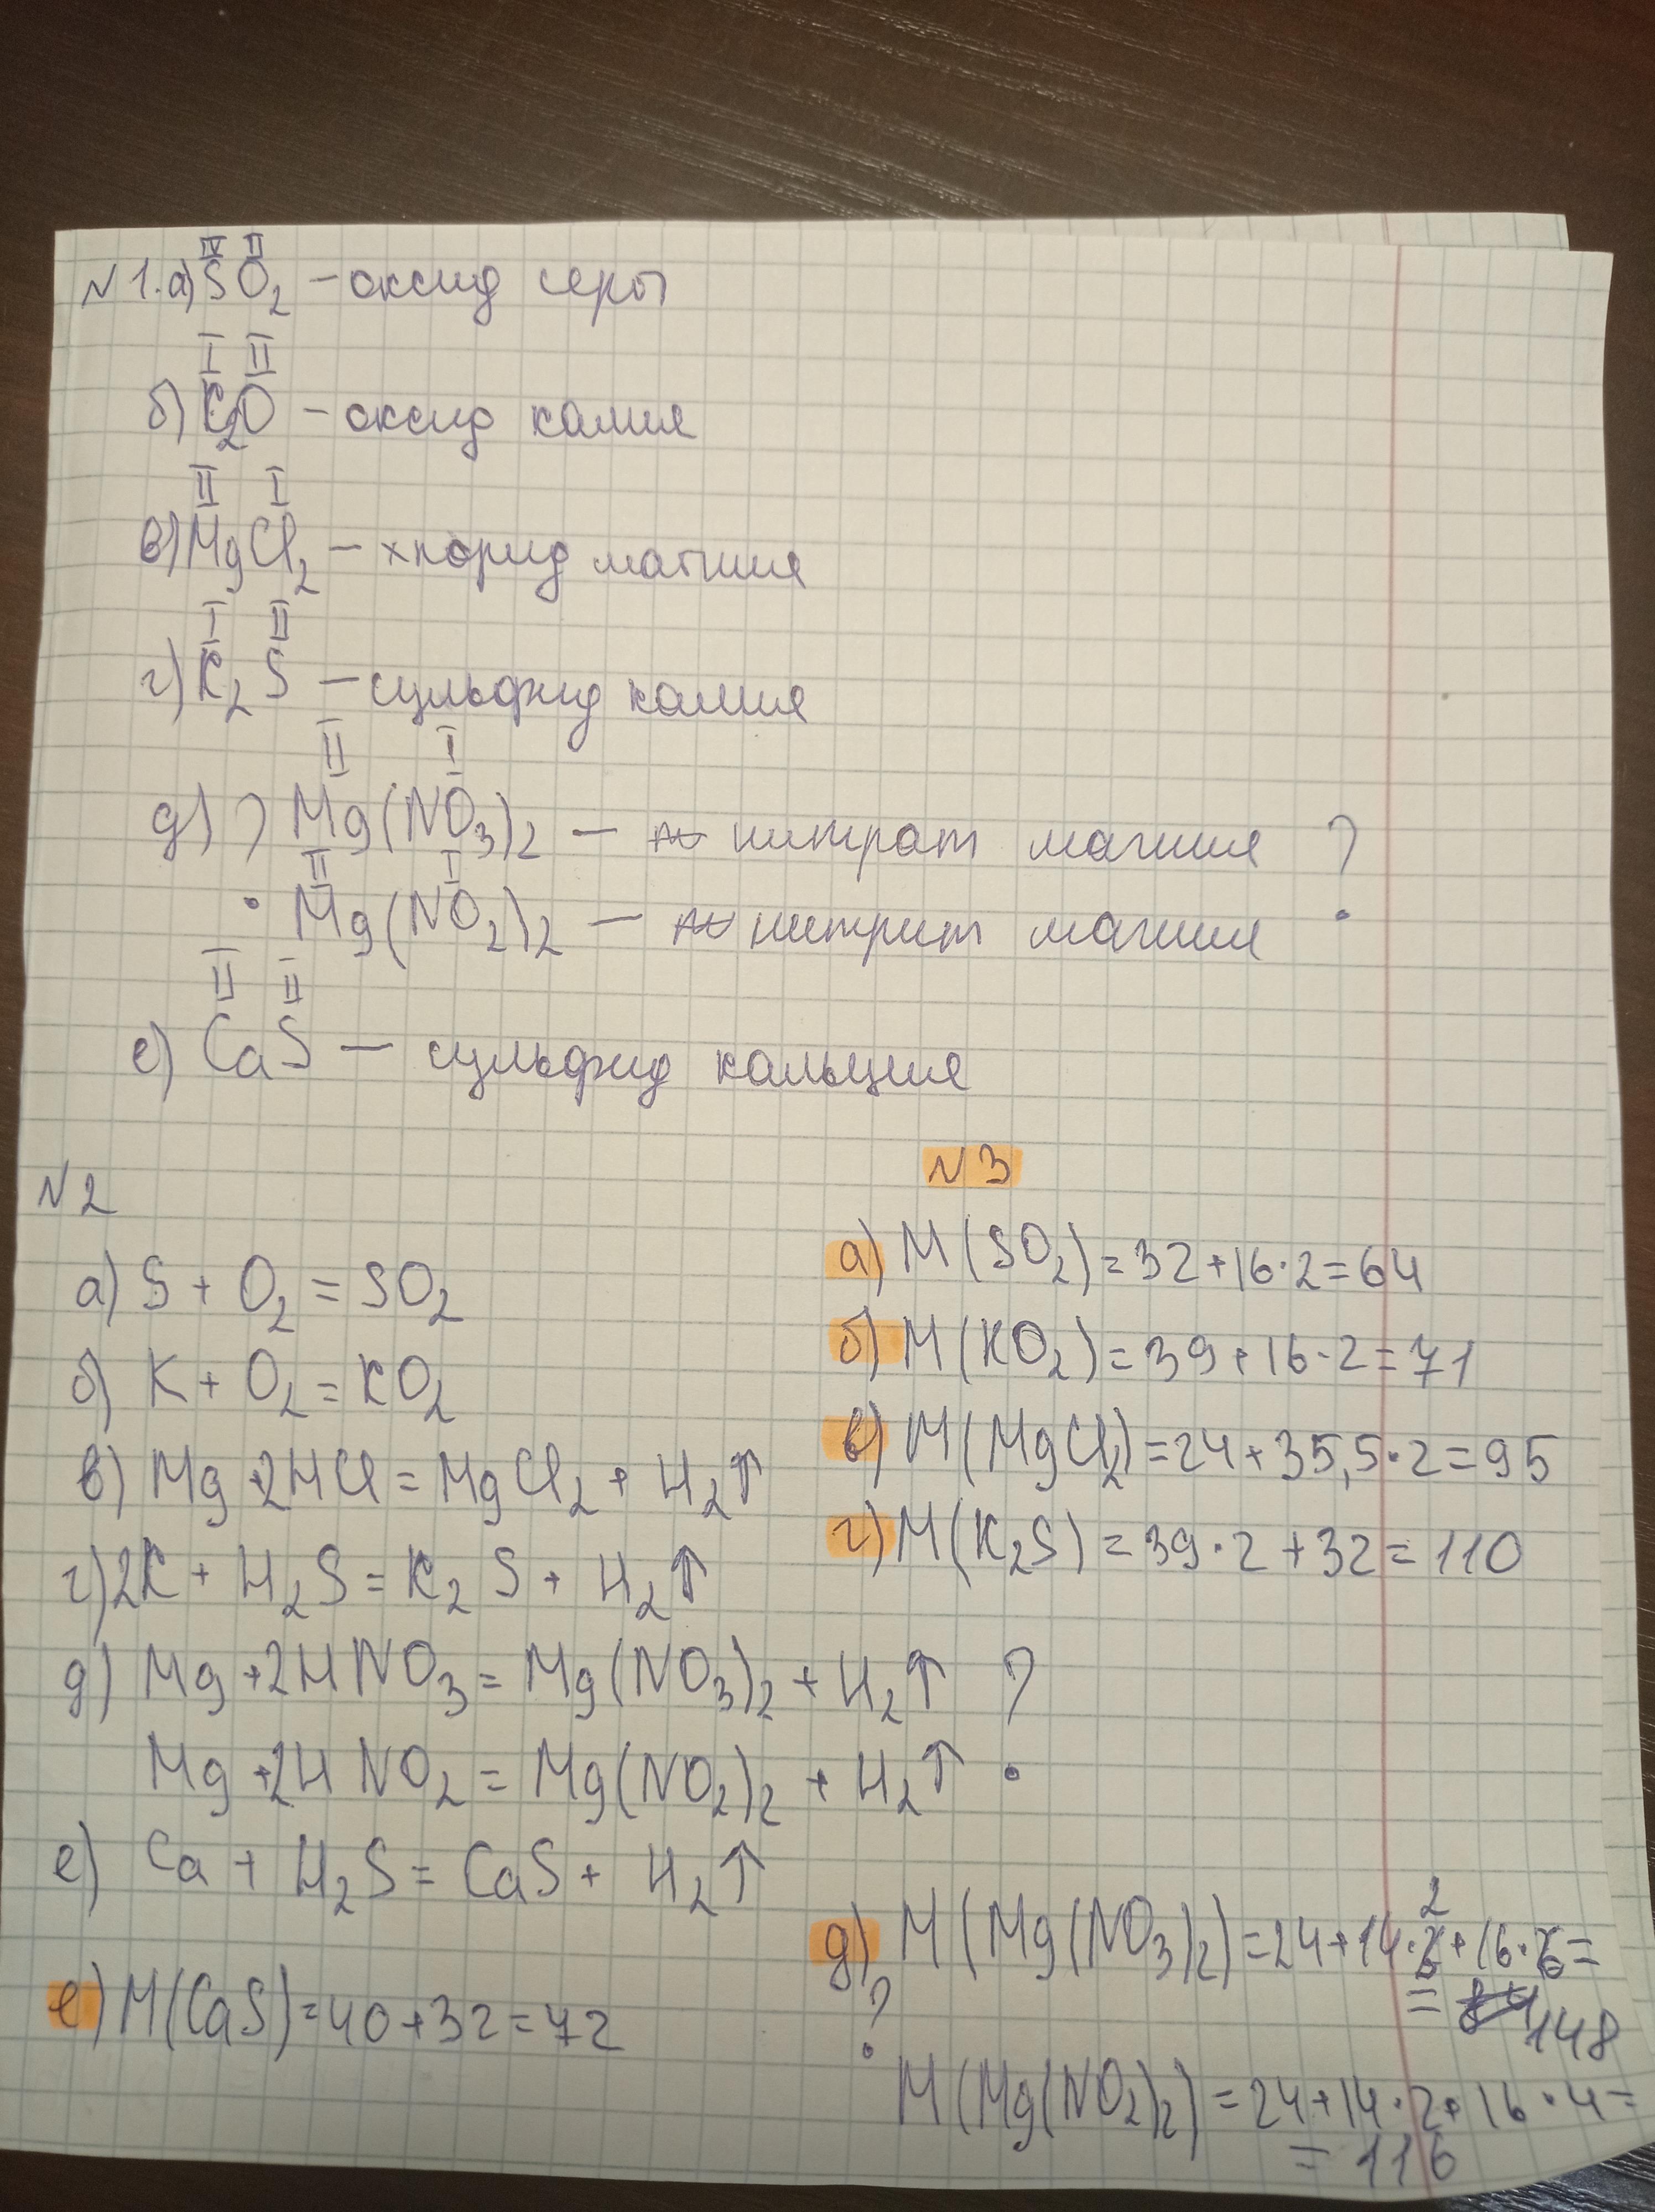 IV II
N1. а) SO2 – оксид серы
I II
б) K2O – оксид калия
II I
в) MgCl2 – хлорид магния
I II
г) K2S – сульфид калия
II I
д) ? Mg(NO3)2 – нитрат магния ?
II I
Mg(NO2)2 – нитрит магния
II II
е) CaS – сульфид кальция
N2
а) S + O2 = SO2
б) K + O2 = KO2
в) Mg + 2HCl = MgCl2 + H2↑
г) 2K + H2S = K2S + H2↑
д) Mg + 2HNO3 = Mg(NO3)2 + H2↑ ?
Mg + 2HNO2 = Mg(NO2)2 + H2↑
е) Ca + H2S = CaS + H2↑
N3
а) M(SO2) = 32 + 16·2 = 64
б) M(KO2) = 39 + 16·2 = 71
в) M(MgCl2) = 24 + 35,5·2 = 95
г) M(K2S) = 39·2 + 32 = 110
д) M(Mg(NO3)2) = 24 + 14·2 + 16·6 =
= 148
?
M(Mg(NO2)2) = 24 + 14·2 + 16·4 =
= 116
е) M(CaS) = 40 + 32 = 72